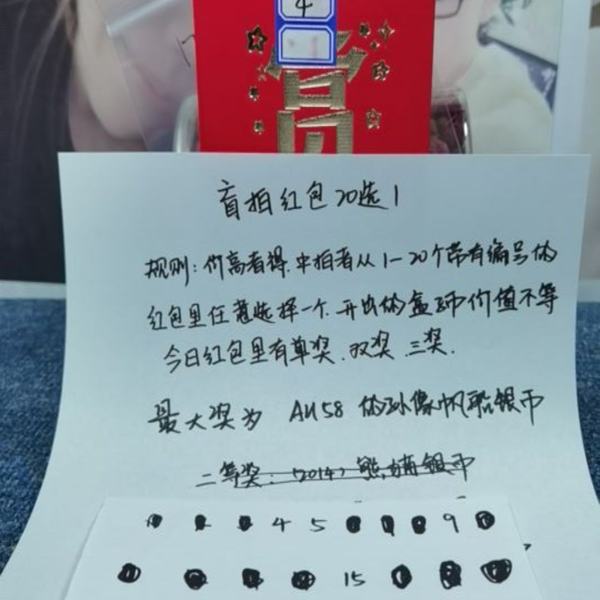 4
盲拍红包20选1
规则:价高者得.中拍者从1-20个带有编号的
红包里任意选择一个.开出的盒子币价值不等
今日红包里有单奖.双奖.三奖.
最大奖为 AU58的孙像帆船银币
二等奖:(2014)熊猫银币
4 5 9
15